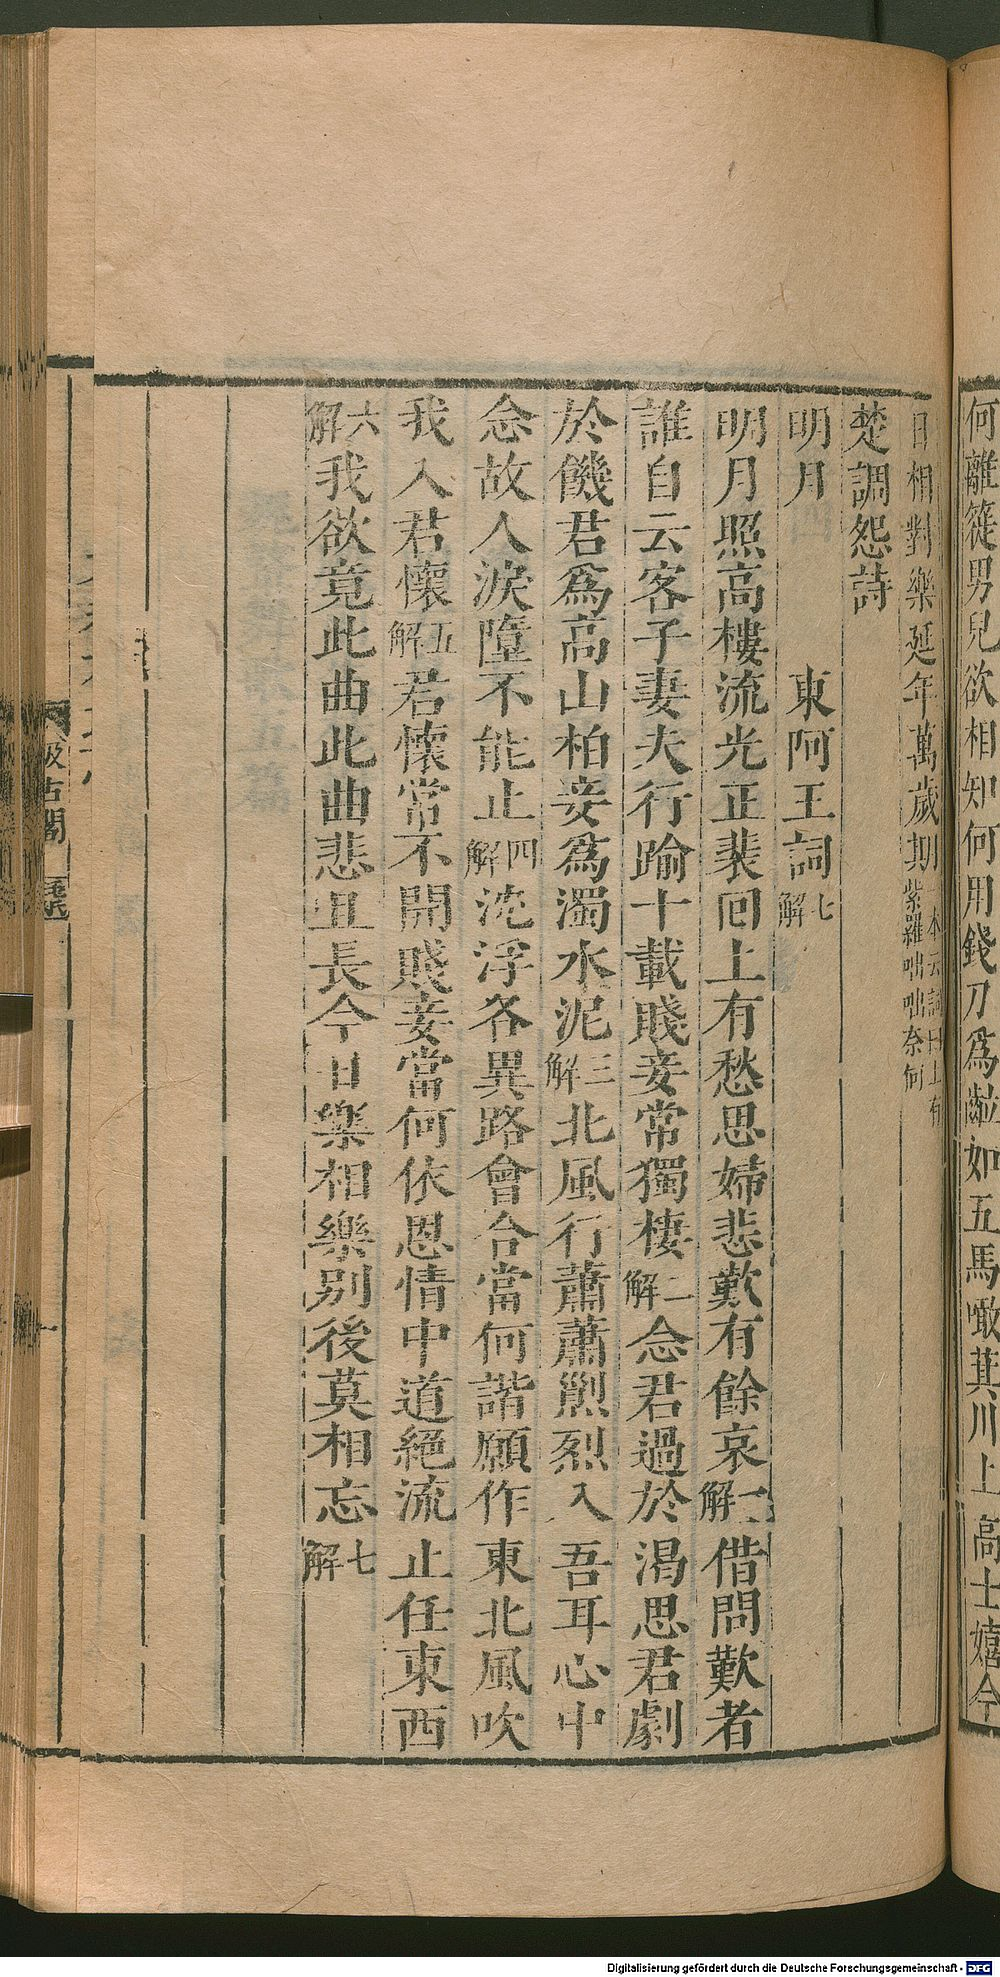 何離簁男兒欲相知何用錢刀爲齝如五馬噉萁川上高士嬉今
日相對樂延年萬歲期一本云詞曰上有紫羅咄咄奈何
楚調怨詩
明月　東阿王詞七解
明月照高樓流光正裴回上有愁思婦悲歎有餘哀一解借問歎者
誰自云客子妻夫行踰十載賤妾常獨棲二解念君過於渴思君劇
於饑君爲高山柏妾爲濁水泥三解北風行蕭蕭烈烈入吾耳心中
念故人淚墮不能止四解沈浮各異路會合當何諧願作東北風吹
我入君懷五解君懷常不開賤妾當何依恩情中道絕流止任東西
六解我欲竟此曲此曲悲且長今日樂相樂別後莫相忘七解
汲古閣
Digitalisierung gefördert durch die Deutsche Forschungsgemeinschaft - DFG